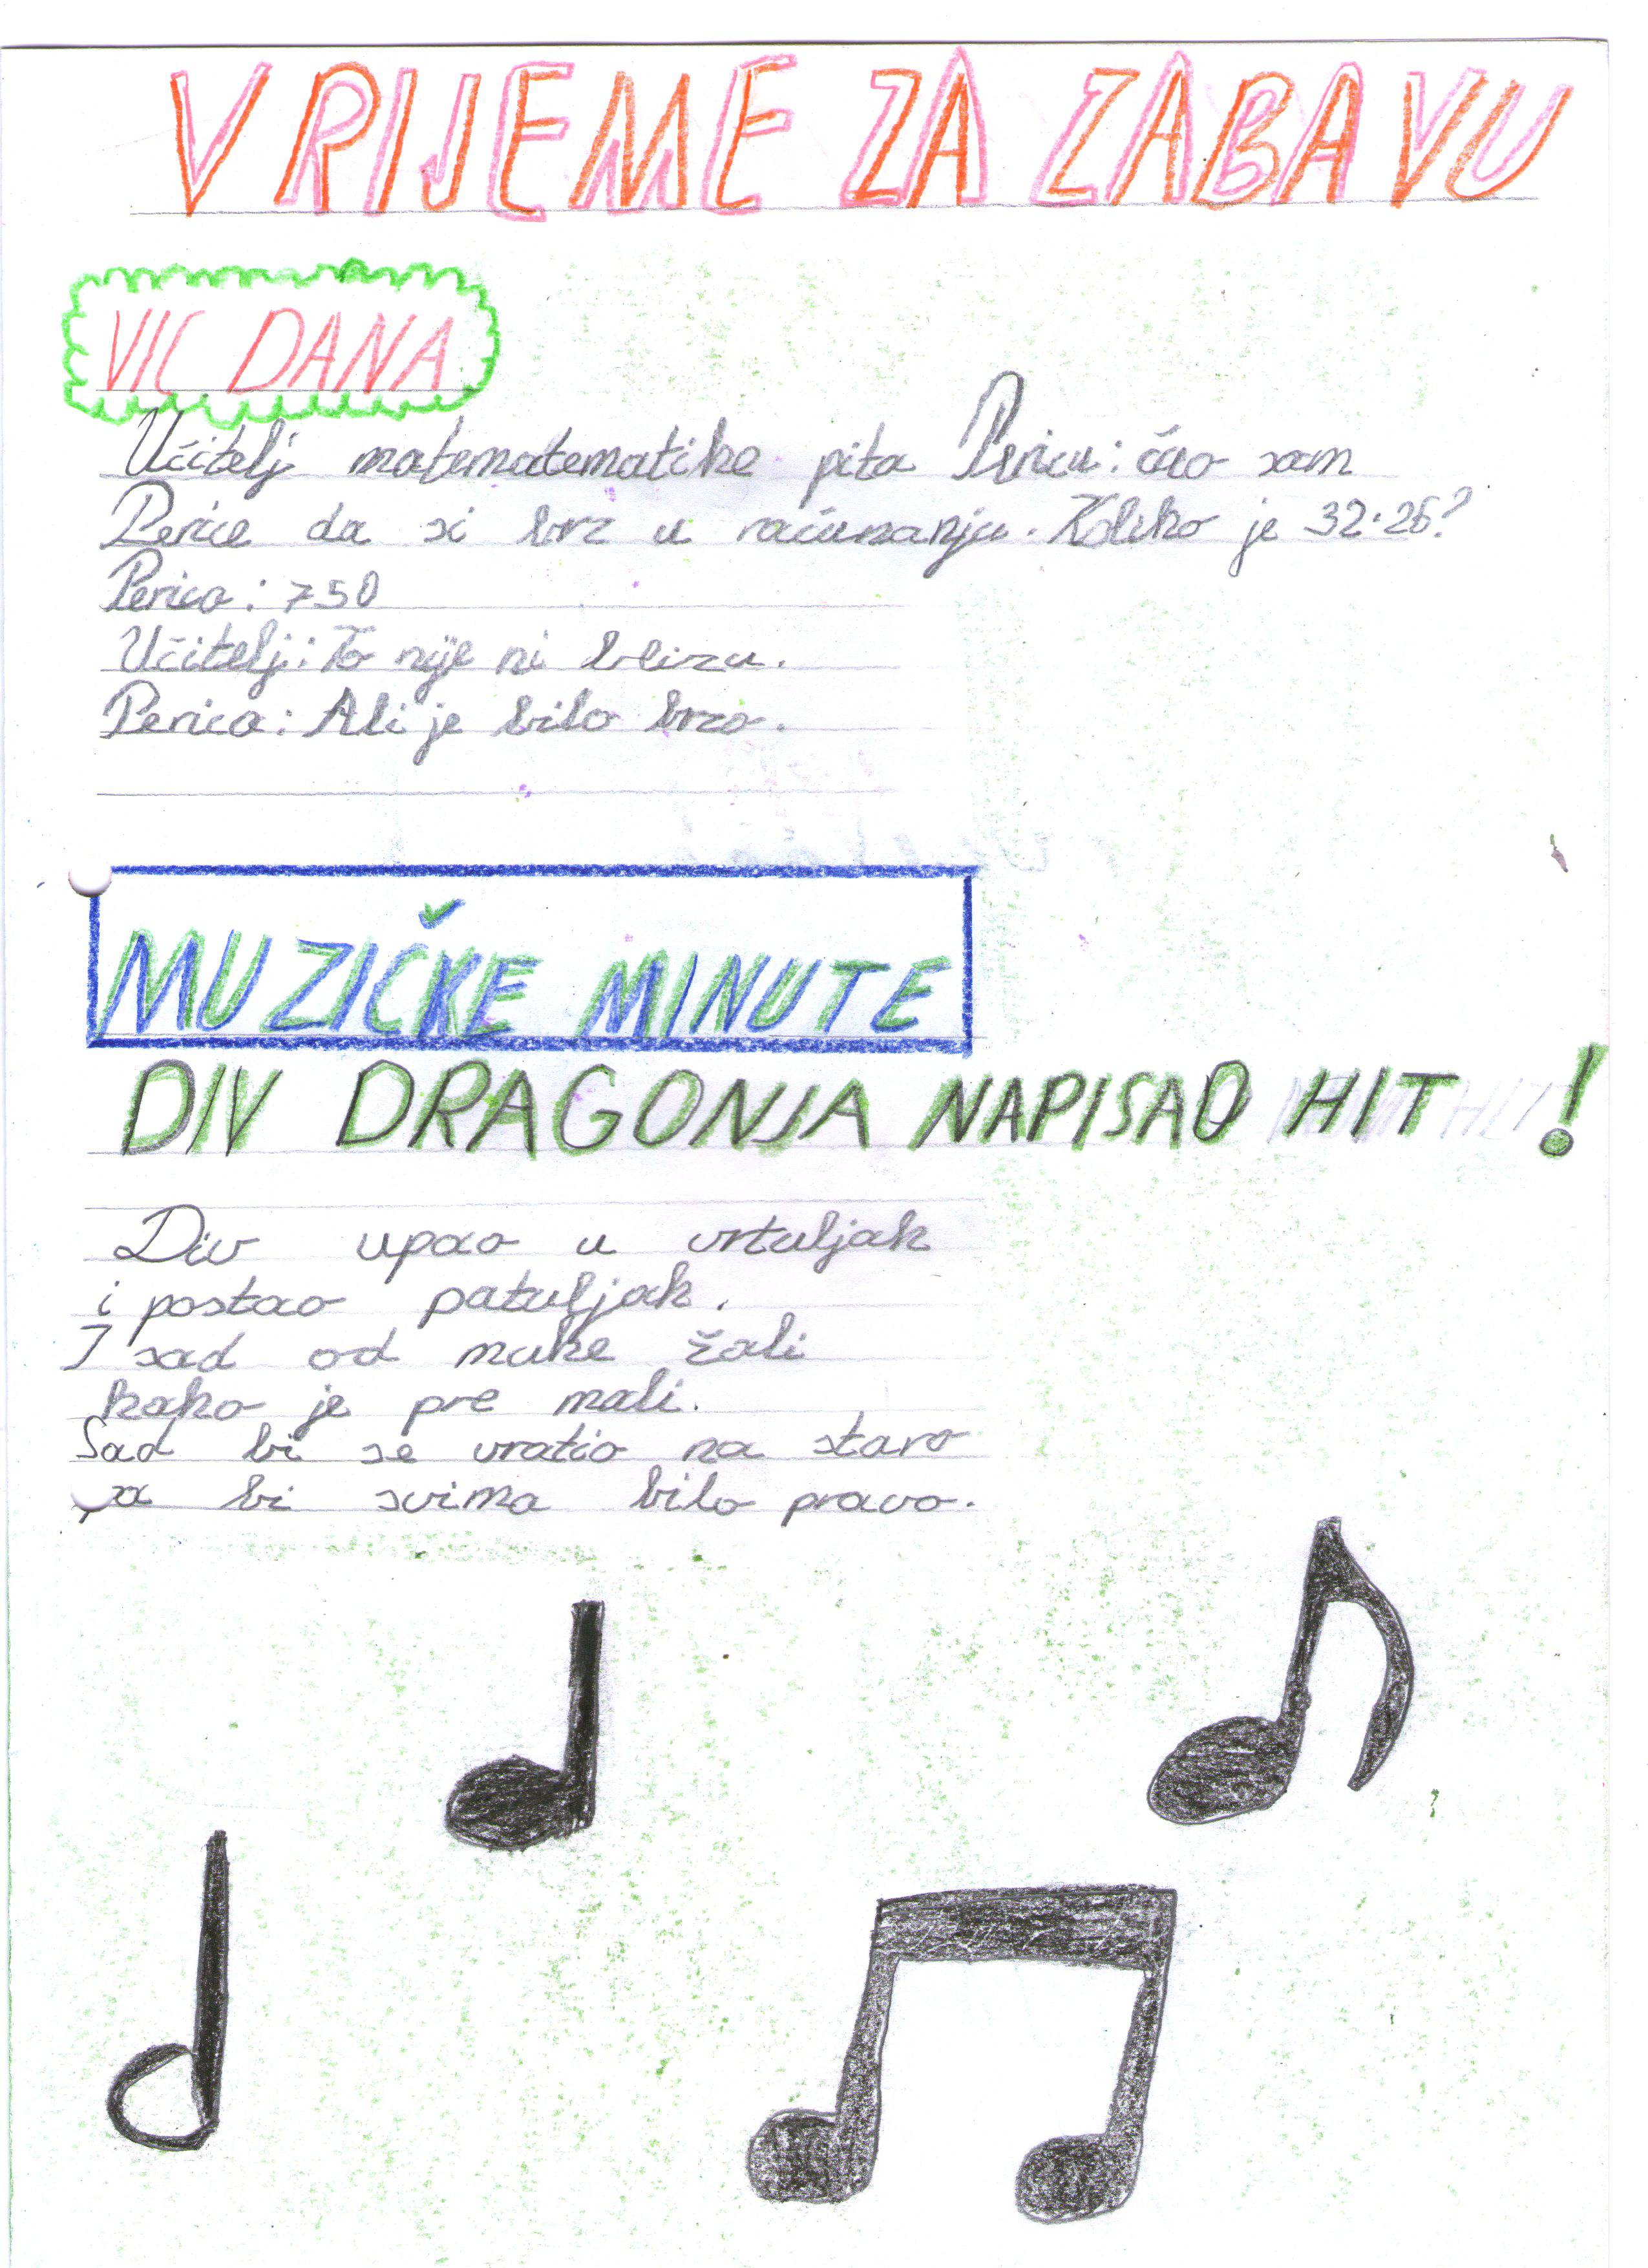 VRIJEME ZA ZABAVU
VIC DANA
Učitelj matematematike pita Pericu: čuo sam
Perice da si brz u računanju. Koliko je 32·26?
Perica: 750
Učitelj: To nije ni blizu.
Perica: Ali je bilo brzo.
MUZIČKE MINUTE
DIV DRAGONJA NAPISAO HIT !
Div upao u vrtuljak
i postao patuljak.
I sad od muke žali
kako je pre mali.
Sad bi se vratio na staro
pa bi svima bilo pravo.